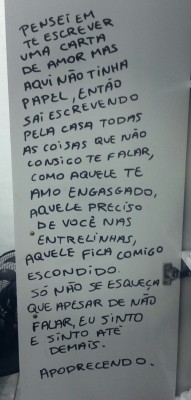 PENSEI EM
TE ESCREVER
UMA CARTA
DE AMOR MAS
AQUI NÃO TINHA
PAPEL, ENTÃO
SAI ESCREVENDO
PELA CASA TODAS
AS COISAS QUE NÃO
CONSIGO TE FALAR,
COMO AQUELE TE
AMO ENGASGADO,
AQUELE PRECISO
DE VOCÊ NAS
ENTRELINHAS,
AQUELE FICA COMIGO
ESCONDIDO.
SÓ NÃO SE ESQUEÇA
QUE APESAR DE NÃO
FALAR, EU SINTO
E SINTO ATÉ
DEMAIS.
APODRECENDO.